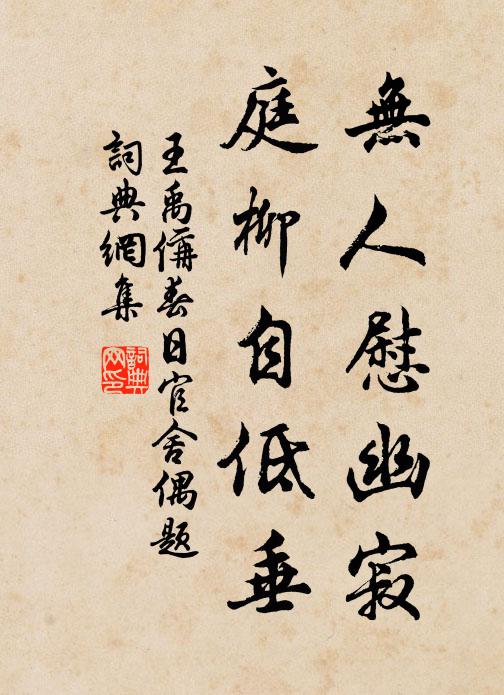 無人慰幽寂
庭柳自低垂
王禹偁春日官舍偶題
詞典網集
詞典网印